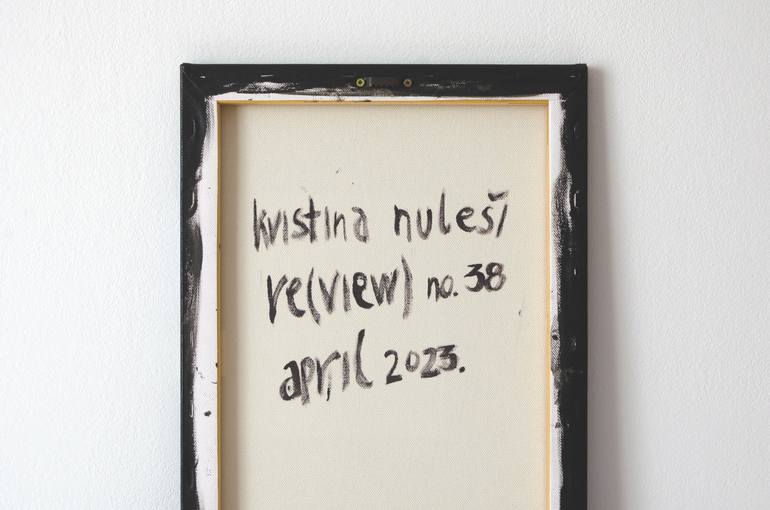 kristina nuleši
re(view) no. 38
april 2023.